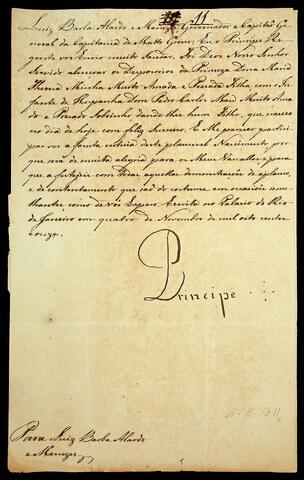 11 11
Luiz Barba Alardo e Menezes Governador e Capitaõ Ge-
neral da Capitania de Matto Groço. Eu o Principe Re-
gente vos Envio muito Saudar. Foi Deos Nosso Senhor
Servido abençoar os Despozorios da Princeza Dona Maria
Thereza Minha Muito Amada e Prezada Filha com o In-
fante de Hespanha Dom Pedro Carlos Meu Muito Ama-
do e Prezado Sobrinho dando-lhes hum Filho, que nasceo
no dia de hoje com feliz Sucesso. E Me pareceo partici-
par-vos a fausta noticia deste plausivel Nascimento, por
que será de muita alegria para os Meus Vassallos, e para
que a festejeis com todas aquellas demonstrações de aplauso,
e de contentamento que saõ do costume em occasiões seme-
lhantes, como de vós Espero. Escrita no Palacio do Rio
de Janeiro em quatro de Novembro de mil oito centos
e onze.
Principe
4-11-1811
Para Luiz Barba Alardo
e Menezes